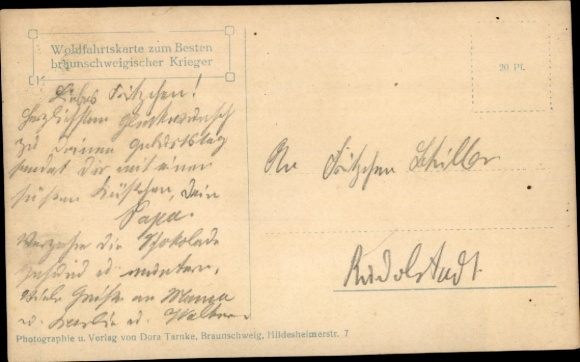 Wohlfahrtskarte zum Besten
braunschweigischer Krieger
20 Pf.
Liebes Fritzchen!
Herzlichsten Glückwunsch
zu Deinem Geburtstag
sendet Dir mit einem
süßen Küßchen, Dein
Papa.
Verzehre die Schokolade
gesund u. munter,
viele Grüße an Mama
u. u. Walter
An Fritzchen Schiller
Rudolstadt.
Photographie u. Verlag von Dora Tarnke, Braunschweig, Hildesheimerstr. 7